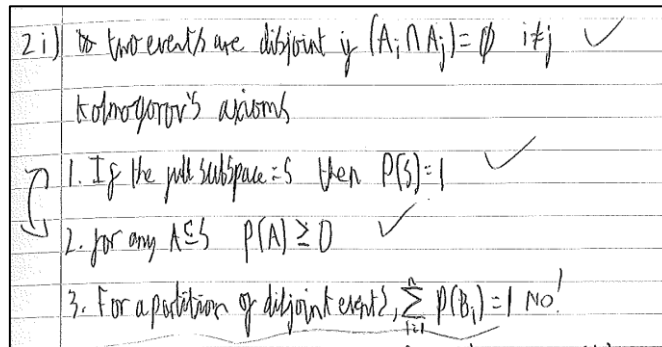 2i) two events are disjoint if (Ai ∩ Aj) = ∅ i≠j ✓
Kolmogorov's axioms
1. If the full subspace = S then P(S) = 1 ✓
2. for any A⊆S P(A) ≥ 0 ✓
3. For a partition of disjoint events, ∑_{i=1}^{n} P(Bi) = 1 No!